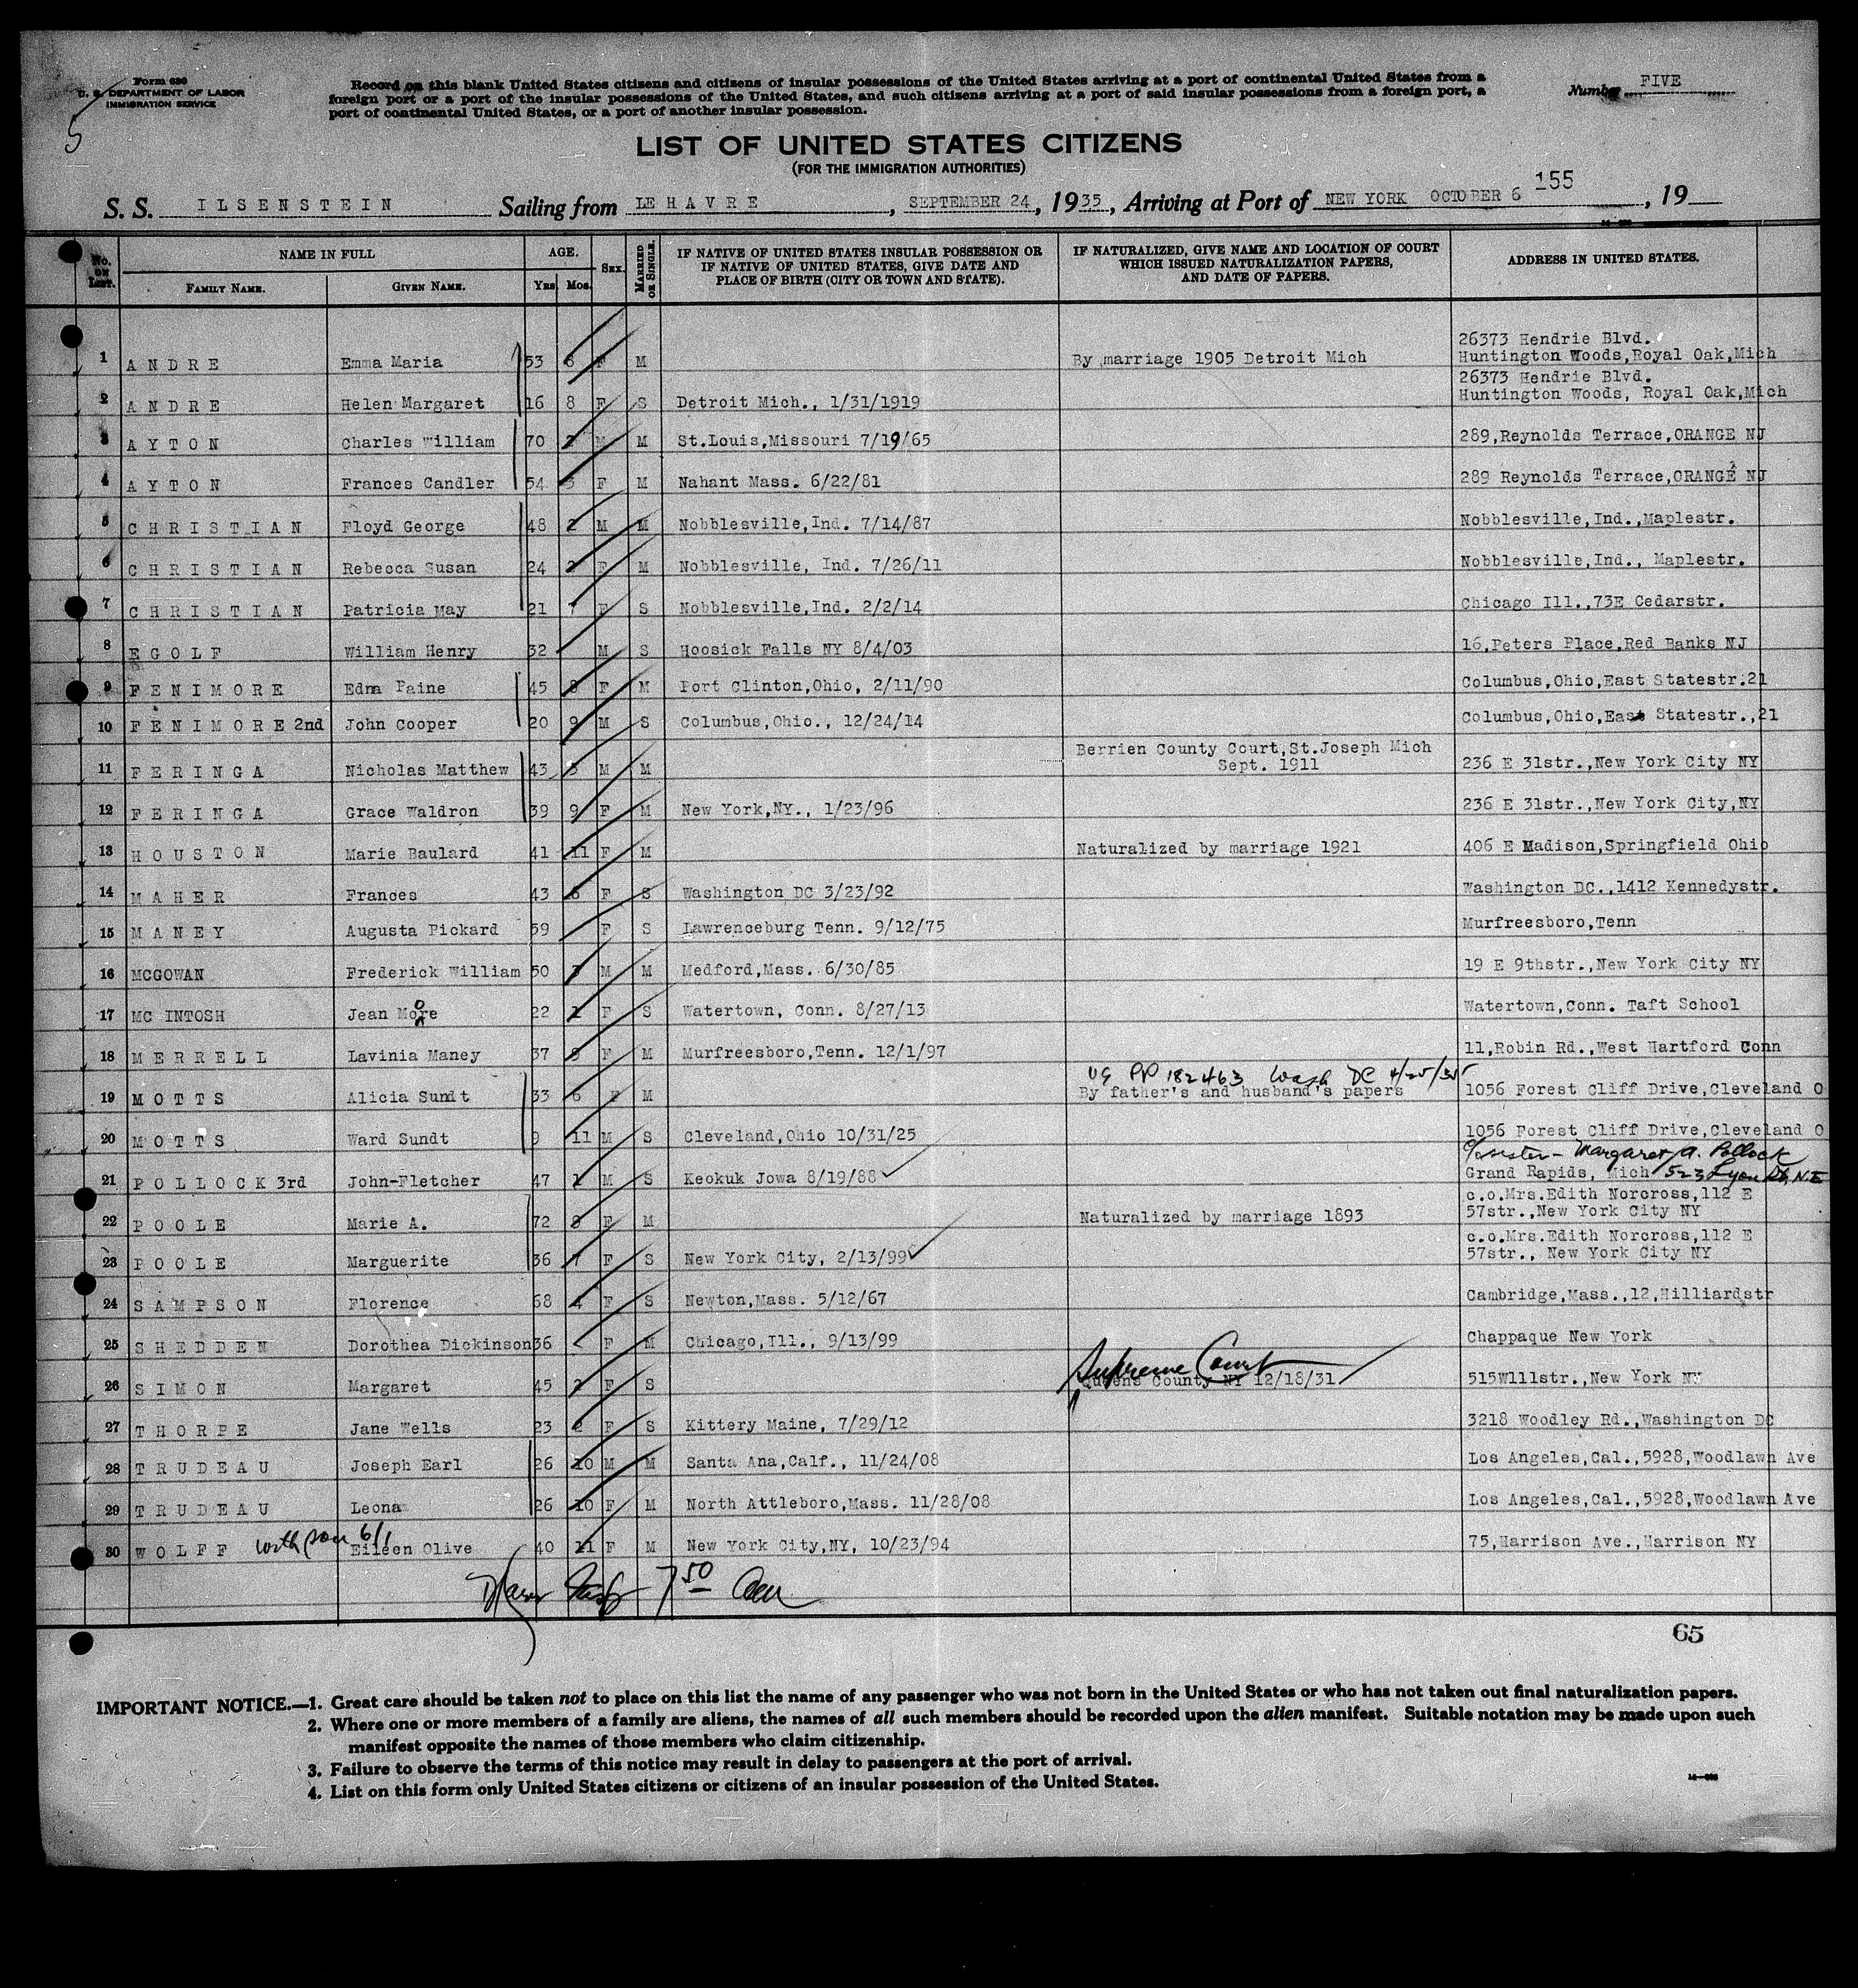 Form 630
U. S. DEPARTMENT OF LABOR
IMMIGRATION SERVICE
5
Record on this blank United States citizens and citizens of insular possessions of the United States arriving at a port of continental United States from a
foreign port or a port of the insular possessions of the United States, and such citizens arriving at a port of said insular possessions from a foreign port, a
port of continental United States, or a port of another insular possession.
Number FIVE
LIST OF UNITED STATES CITIZENS
(FOR THE IMMIGRATION AUTHORITIES)
155
S. S. ILSENSTEIN Sailing from LE HAVRE, SEPTEMBER 24, 1935, Arriving at Port of NEW YORK OCTOBER 6, 19
No. ON LIST. NAME IN FULL FAMILY NAME. GIVEN NAME. AGE. Yrs. Mos. SEX. MARRIED OR SINGLE. IF NATIVE OF UNITED STATES INSULAR POSSESSION OR IF NATIVE OF UNITED STATES, GIVE DATE AND PLACE OF BIRTH (CITY OR TOWN AND STATE). IF NATURALIZED, GIVE NAME AND LOCATION OF COURT WHICH ISSUED NATURALIZATION PAPERS, AND DATE OF PAPERS. ADDRESS IN UNITED STATES.
26373 Hendrie Blvd.
1 ANDRE Emma Maria 53 6 F M By marriage 1905 Detroit Mich Huntington Woods,Royal Oak,Mich
26373 Hendrie Blvd.
2 ANDRE Helen Margaret 16 8 F S Detroit Mich., 1/31/1919 Huntington Woods, Royal Oak,Mich
3 AYTON Charles William 70 2 M M St.Louis,Missouri 7/19/65 289,Reynolds Terrace,ORANGE NJ
4 AYTON Frances Candler 54 3 F M Nahant Mass. 6/22/81 289 Reynolds Terrace,ORANGE NJ
5 CHRISTIAN Floyd George 48 2 M M Nobblesville,Ind. 7/14/87 Nobblesville,Ind.,Maplestr.
6 CHRISTIAN Rebecca Susan 24 2 F M Nobblesville, Ind. 7/26/11 Nobblesville,Ind., Maplestr.
7 CHRISTIAN Patricia May 21 7 F S Nobblesville,Ind. 2/2/14 Chicago Ill.,73E Cedarstr.
8 EGOLF William Henry 32 M S Hoosick Falls NY 8/4/03 16,Peters Place,Red Banks NJ
9 FENIMORE Edna Paine 45 8 F M Port Clinton,Ohio, 2/11/90 Columbus,Ohio,East Statestr.21
10 FENIMORE 2nd John Cooper 20 9 M S Columbus,Ohio., 12/24/14 Columbus,Ohio,East Statestr.,21
Berrien County Court,St.Joseph Mich
11 FERINGA Nicholas Matthew 43 3 M M Sept. 1911 236 E 31str.,New York City NY
12 FERINGA Grace Waldron 39 9 F M New York,NY., 1/23/96 236 E 31str.,New York City,NY
13 HOUSTON Marie Baulard 41 11 F M Naturalized by marriage 1921 406 E Madison,Springfield Ohio
14 MAHER Frances 43 6 F S Washington DC 3/23/92 Washington DC.,1412 Kennedystr.
15 MANEY Augusta Pickard 59 F S Lawrenceburg Tenn. 9/12/75 Murfreesboro,Tenn
16 MCGOWAN Frederick William 50 3 M M Medford,Mass. 6/30/85 19 E 9thstr.,New York City NY
17 MC INTOSH Jean Moore 22 1 F S Watertown, Conn. 8/27/13 Watertown,Conn. Taft School
18 MERRELL Lavinia Maney 37 9 F M Murfreesboro,Tenn. 12/1/97 11,Robin Rd.,West Hartford Conn
US PP 182463 Wash DC 4/25/35
19 MOTTS Alicia Sundt 33 6 F M By father's and husband's papers 1056 Forest Cliff Drive,Cleveland O
20 MOTTS Ward Sundt 9 11 M S Cleveland,Ohio 10/31/25 1056 Forest Cliff Drive,Cleveland O
c/o sister - Margaret A. Pollock
21 POLLOCK 3rd John-Fletcher 47 1 M S Keokuk Jowa 8/19/88 Grand Rapids, Mich 523 Lyon St, N.E
c.o.Mrs.Edith Norcross,112 E
22 POOLE Marie A. 72 8 F M Naturalized by marriage 1893 57str.,New York City NY
c.o.Mrs.Edith Norcross,112 E
23 POOLE Marguerite 36 7 F S New York City, 2/13/99 57str., New York City NY
24 SAMPSON Florence 68 4 F S Newton,Mass. 5/12/67 Cambridge,Mass.,12,Hilliardstr
25 SHEDDEN Dorothea Dickinson 36 F M Chicago,Ill., 9/13/99 Chappaque New York
Supreme Court
26 SIMON Margaret 45 2 F S Queens County NY 12/18/31 515W111str.,New York NY
27 THORPE Jane Wells 23 2 F S Kittery Maine, 7/29/12 3218 Woodley Rd.,Washington DC
28 TRUDEAU Joseph Earl 26 10 M M Santa Ana,Calf., 11/24/08 Los Angeles,Cal.,5928,Woodlawn Ave
29 TRUDEAU Leona 26 10 F M North Attleboro,Mass. 11/28/08 Los Angeles,Cal.,5928,Woodlawn Ave
30 WOLFF with son 6/1 Eileen Olive 40 11 F M New York City,NY, 10/23/94 75,Harrison Ave.,Harrison NY
7 50
65
IMPORTANT NOTICE.—1. Great care should be taken not to place on this list the name of any passenger who was not born in the United States or who has not taken out final naturalization papers.
2. Where one or more members of a family are aliens, the names of all such members should be recorded upon the alien manifest. Suitable notation may be made upon such
manifest opposite the names of those members who claim citizenship.
3. Failure to observe the terms of this notice may result in delay to passengers at the port of arrival.
4. List on this form only United States citizens or citizens of an insular possession of the United States.